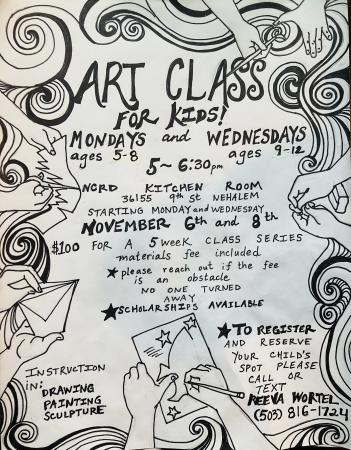 ART CLASS
FOR KIDS!
MONDAYS and WEDNESDAYS
ages 5-8 ages 9-12
5~6:30pm
NCRD KITCHEN ROOM
36155 9th ST NEHALEM
STARTING MONDAY and WEDNESDAY
NOVEMBER 6th and 8th
$100 FOR A 5 WEEK CLASS SERIES
materials fee included
*please reach out if the fee
is an obstacle
NO ONE TURNED
AWAY
★SCHOLARSHIPS AVAILABLE
★TO REGISTER
AND RESERVE
YOUR CHILD'S
SPOT PLEASE
CALL OR
TEXT
REEVA WORTEL
(503) 816-1724
INSTRUCTION
IN:
DRAWING
PAINTING
SCULPTURE